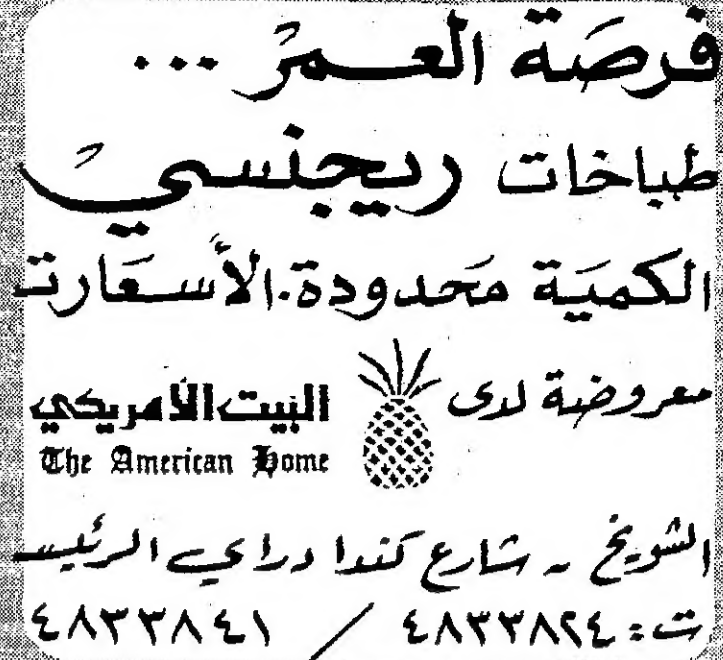 فرصَة العمرُ ...
طباخات ريجنسي
الكميَة مَحدودة.الأسعَار
معروضة لدى
البيت الأمريكي
The American Home
الشويخ - شارع كندا دراي
ت: ٤٨٣٣٨٢٤ / ٤٨٣٣٨٤١